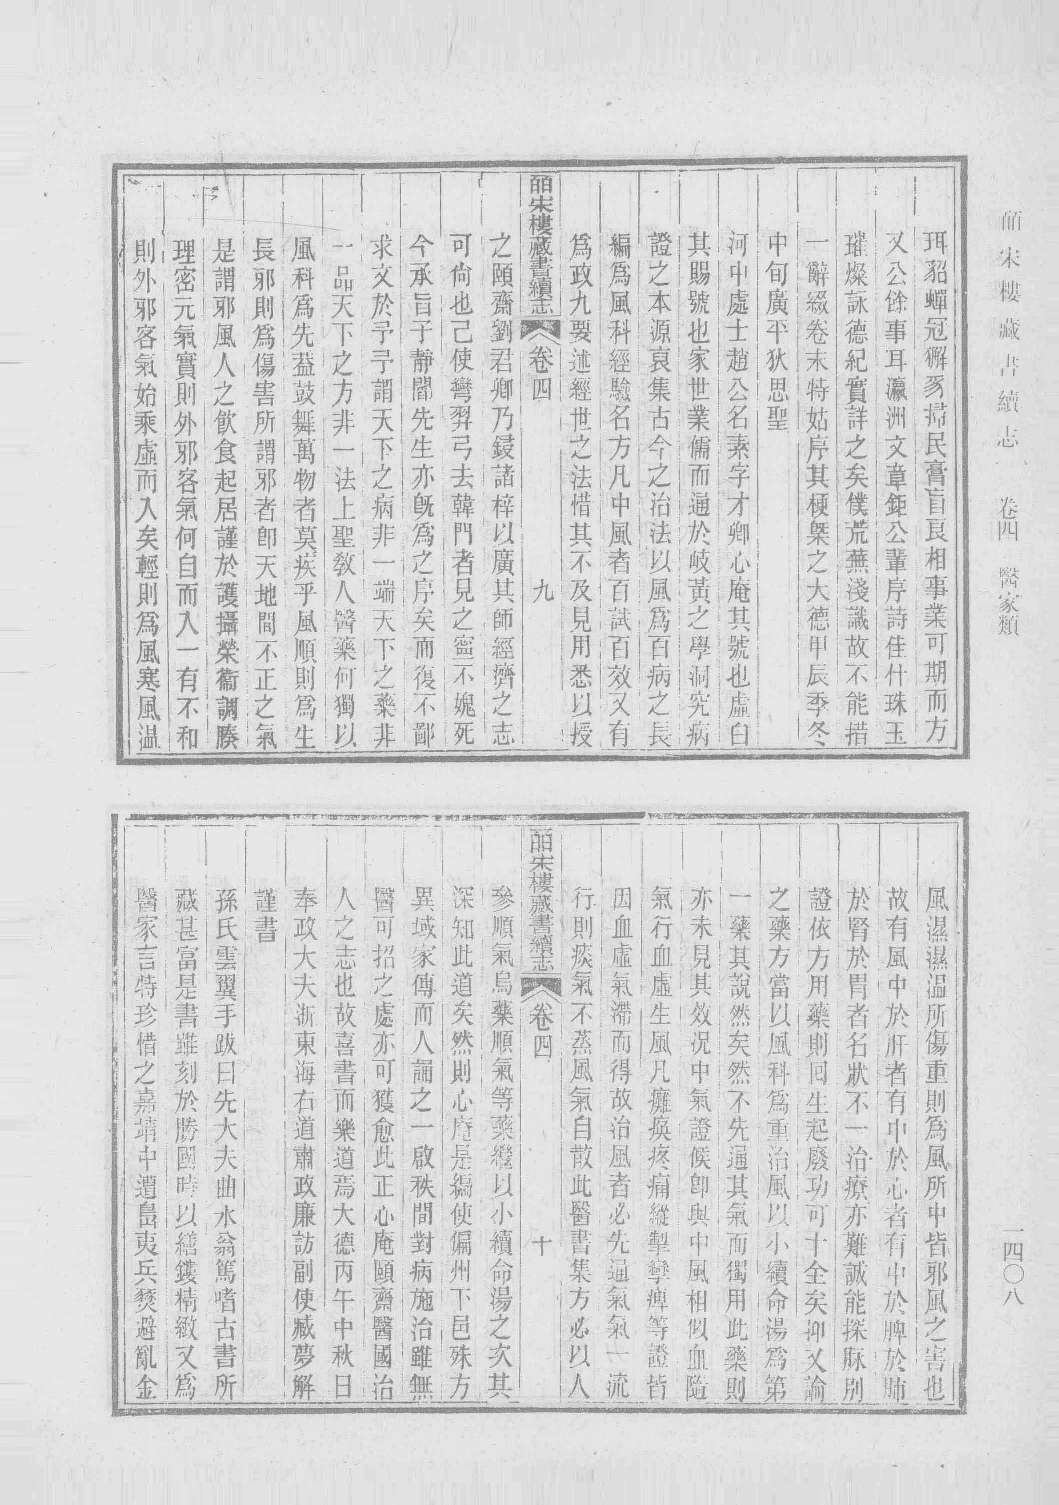 皕宋樓藏書續志 卷四 醫家類
一四〇八
珥貂蟬冠獬豸掃民膏盲良相事業可期而方
又公餘事耳瀛洲文章鉅公輩序詩佳什珠玉
璀燦詠德紀實詳之矣僕荒蕪淺識故不能措
一辭綴卷末特姑序其梗槩之大德甲辰季冬
中旬廣平狄思聖
河中處士趙公名素字才卿心庵其號也虛白
其賜號也家世業儒而通於岐黃之學洞究病
證之本源裒集古今之治法以風爲百病之長
編爲風科經驗名方凡中風者百試百效又有
爲政九要述經世之法惜其不及見用悉以授
皕宋樓藏書續志 卷四 九
之頤齋劉君卿乃鋟諸梓以廣其師經濟之志
可尙也己使彎羿弓去韓門者見之寧不媿死
今承旨子靜閻先生亦旣爲之序矣而復不鄙
求文於予予謂天下之病非一端天下之藥非
一品天下之方非一法上聖敎人醫藥何獨以
風科爲先葢鼓舞萬物者莫疾乎風順則爲生
長邪則爲傷害所謂邪者卽天地間不正之氣
是謂邪風人之飮食起居謹於護攝榮衞調腠
理密元氣實則外邪客氣何自而入一有不和
則外邪客氣始乘虛而入矣輕則爲風寒風温
風濕濕温所傷重則爲風所中皆邪風之害也
故有風中於肝者有中於心者有中於脾於肺
於腎於胃者名狀不一治療亦難誠能探厤別
證依方用藥則囘生起廢功可十全矣抑又論
之藥方當以風科爲重治風以小續命湯爲第
一藥其說然矣然不先通其氣而獨用此藥則
亦未見其效况中氣證候卽與中風相似血隨
氣行血虛生風凡癱瘓疼痛縱掣攣痺等證皆
因血虛氣滯而得故治風者必先通氣氣一流
行則痰氣不蒸風氣自散此醫書集方必以人
皕宋樓藏書續志 卷四 十
參順氣烏藥順氣等藥繼以小續命湯之次其
深知此道矣然則心庵是編使偏州下邑殊方
異域家傳而人誦之一啟秩間對病施治雖無
醫可招之處亦可獲愈此正心庵頤齋醫國治
人之志也故喜書而樂道焉大德丙午中秋日
奉政大夫浙東海右道肅政廉訪副使臧夢解
謹書
孫氏雲翼手跋曰先大夫曲水翁篤嗜古書所
藏甚富是書雖刻於勝國時以繕鏤精緻又爲
醫家言特珍惜之嘉靖中遭島夷兵燹避亂金